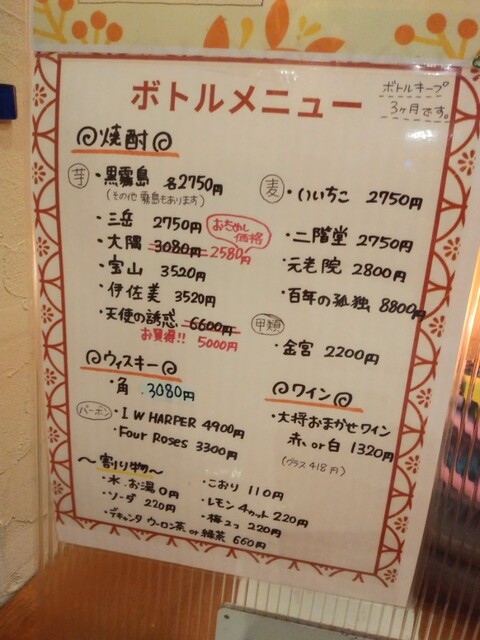 ボトルメニュー
ボトルキープ
3ヶ月です。
焼酎
芋
・黒霧島 各2750円
(その他 霧島もあります)
・三岳 2750円
おためし
価格
・大隅 3080円 2580円
・宝山 3520円
・伊佐美 3520円
・天使の誘惑 6600円
お買得!! 5000円
麦
・いいちこ 2750円
・二階堂 2750円
・元老院 2800円
・百年の孤独 8800円
甲類
・金宮 2200円
ウィスキー
・角 3080円
バーボン
・I W HARPER 4900円
・Four Roses 3300円
ワイン
・大将おまかせワイン
赤 or 白 1320円
(グラス 418円)
〜割り物〜
・水、お湯 0円
・ソーダ 220円
・デキャンタ ウーロン茶 or 緑茶 660円
・こおり 110円
・レモン4カット 220円
・梅2コ 220円